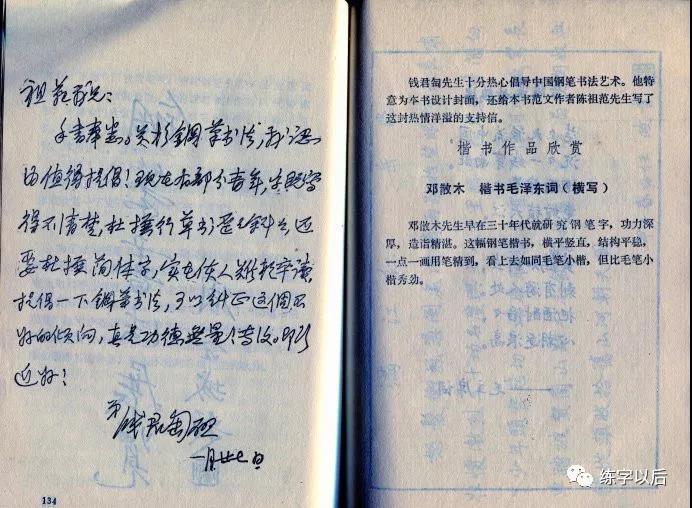 祖范兄：
手书奉悉。关于钢笔书法，我认
为值得提倡！现在有部分青年，字既写
得不清楚，杜撰行草书歪歪斜斜，还
要杜撰简体字，实在使人难卒读，
提倡一下钢笔书法，可以纠正这个不
好的倾向，真是功德无量！专复。即颂
近好！
弟
钱君匋
一月廿七日
134
钱君匋先生十分热心倡导中国钢笔书法艺术。他特
意为本书设计封面，还给本书范文作者陈祖范先生写了
这封热情洋溢的支持信。
楷书作品欣赏
邓散木 楷书毛泽东词（横写）
邓散木先生早在三十年代就研究钢笔字，功力深
厚，造诣精湛。这幅钢笔楷书，横平竖直，结构平稳，
一点一画用笔精到，看上去如同毛笔小楷，但比毛笔小
楷秀劲。
练字以后